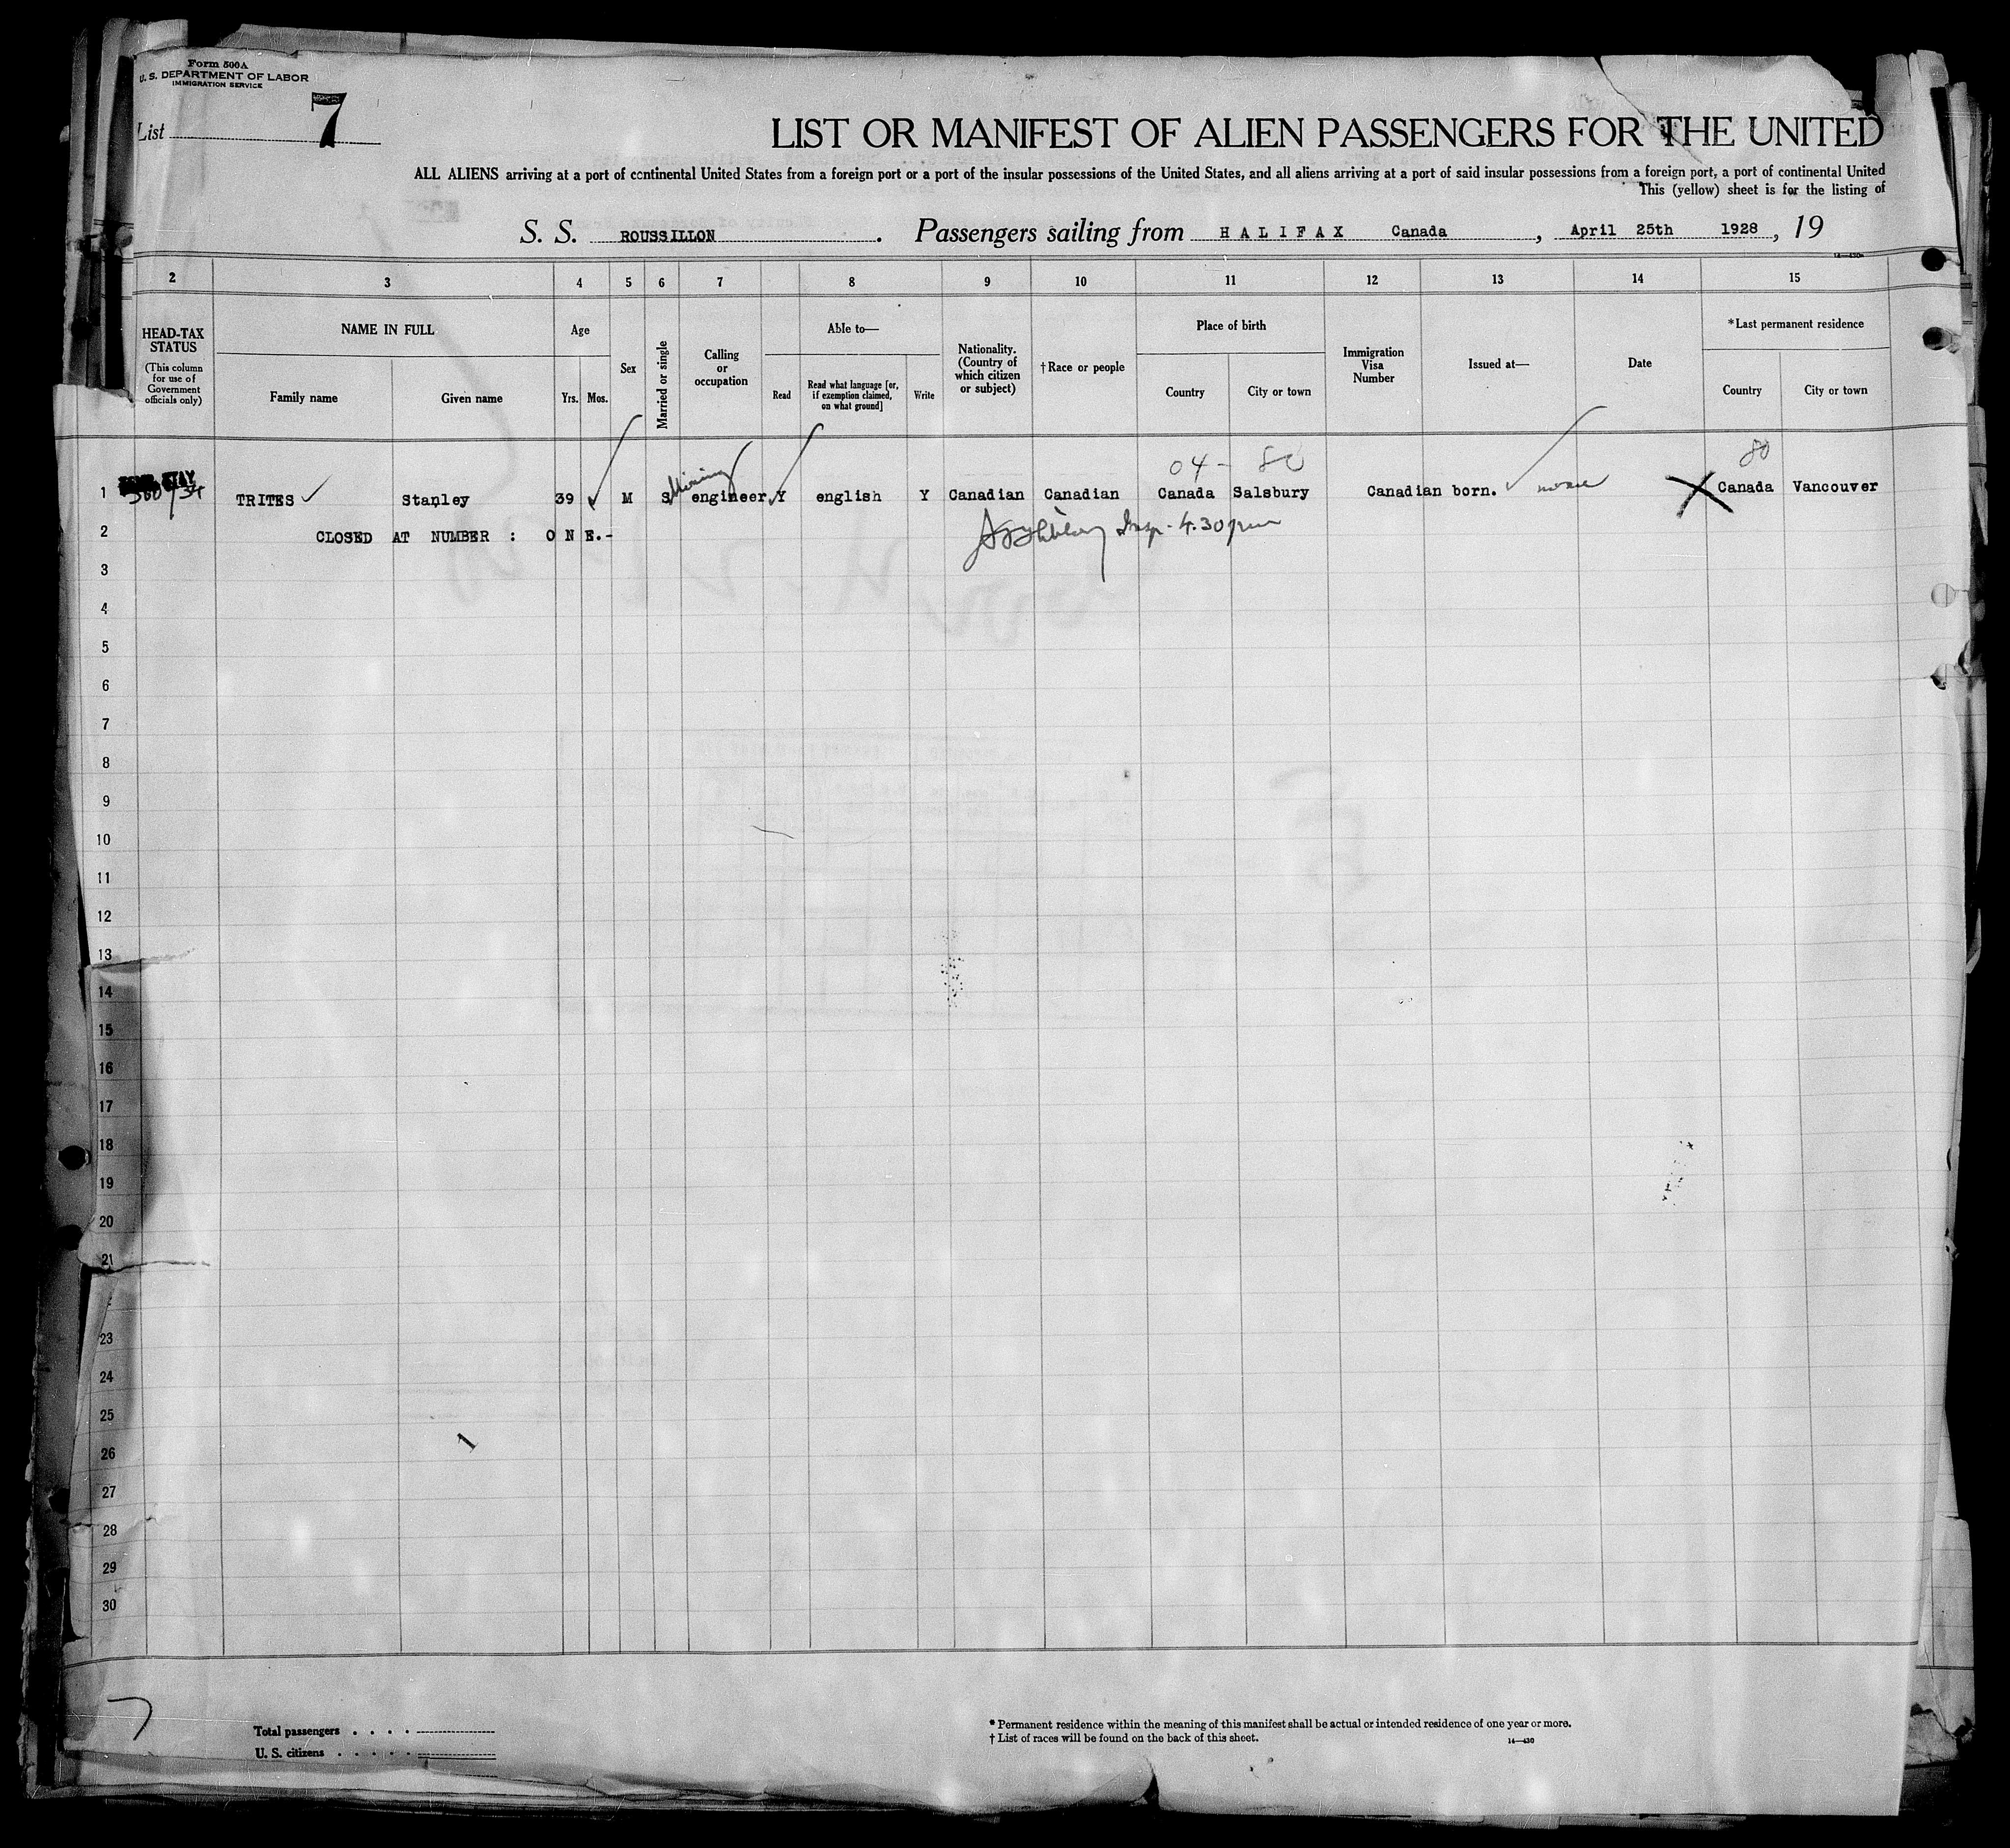 Form 500A
U. S. DEPARTMENT OF LABOR
IMMIGRATION SERVICE
List 7
LIST OR MANIFEST OF ALIEN PASSENGERS FOR THE UNITED
ALL ALIENS arriving at a port of continental United States from a foreign port or a port of the insular possessions of the United States, and all aliens arriving at a port of said insular possessions from a foreign port, a port of continental United
This (yellow) sheet is for the listing of
S. S. ROUSSILLON. Passengers sailing from HALIFAX Canada, April 25th 1928, 19
14—430
2 3 4 5 6 7 8 9 10 11 12 13 14 15
HEAD-TAX STATUS
(This column for use of Government officials only)
NAME IN FULL
Family name
Given name
Age
Yrs.
Mos.
Sex
Married or single
Calling or occupation
Able to—
Read
Read what language [or, if exemption claimed, on what ground]
Write
Nationality. (Country of which citizen or subject)
†Race or people
Place of birth
Country
City or town
Immigration Visa Number
Issued at—
Date
*Last permanent residence
Country
City or town
04 - 80 80
1 TRITES Stanley 39 M S Mining engineer Y english Y Canadian Canadian Canada Salsbury Canadian born. none Canada Vancouver
2 CLOSED AT NUMBER : O N E.- Insp. 4.30 pm
3
4
5
6
7
8
9
10
11
12
13
14
15
16
17
18
19
20
21
23
24
25
26
27
28
29
30
7
Total passengers . . . .
U. S. citizens . . . . .
* Permanent residence within the meaning of this manifest shall be actual or intended residence of one year or more.
† List of races will be found on the back of this sheet.
14—430